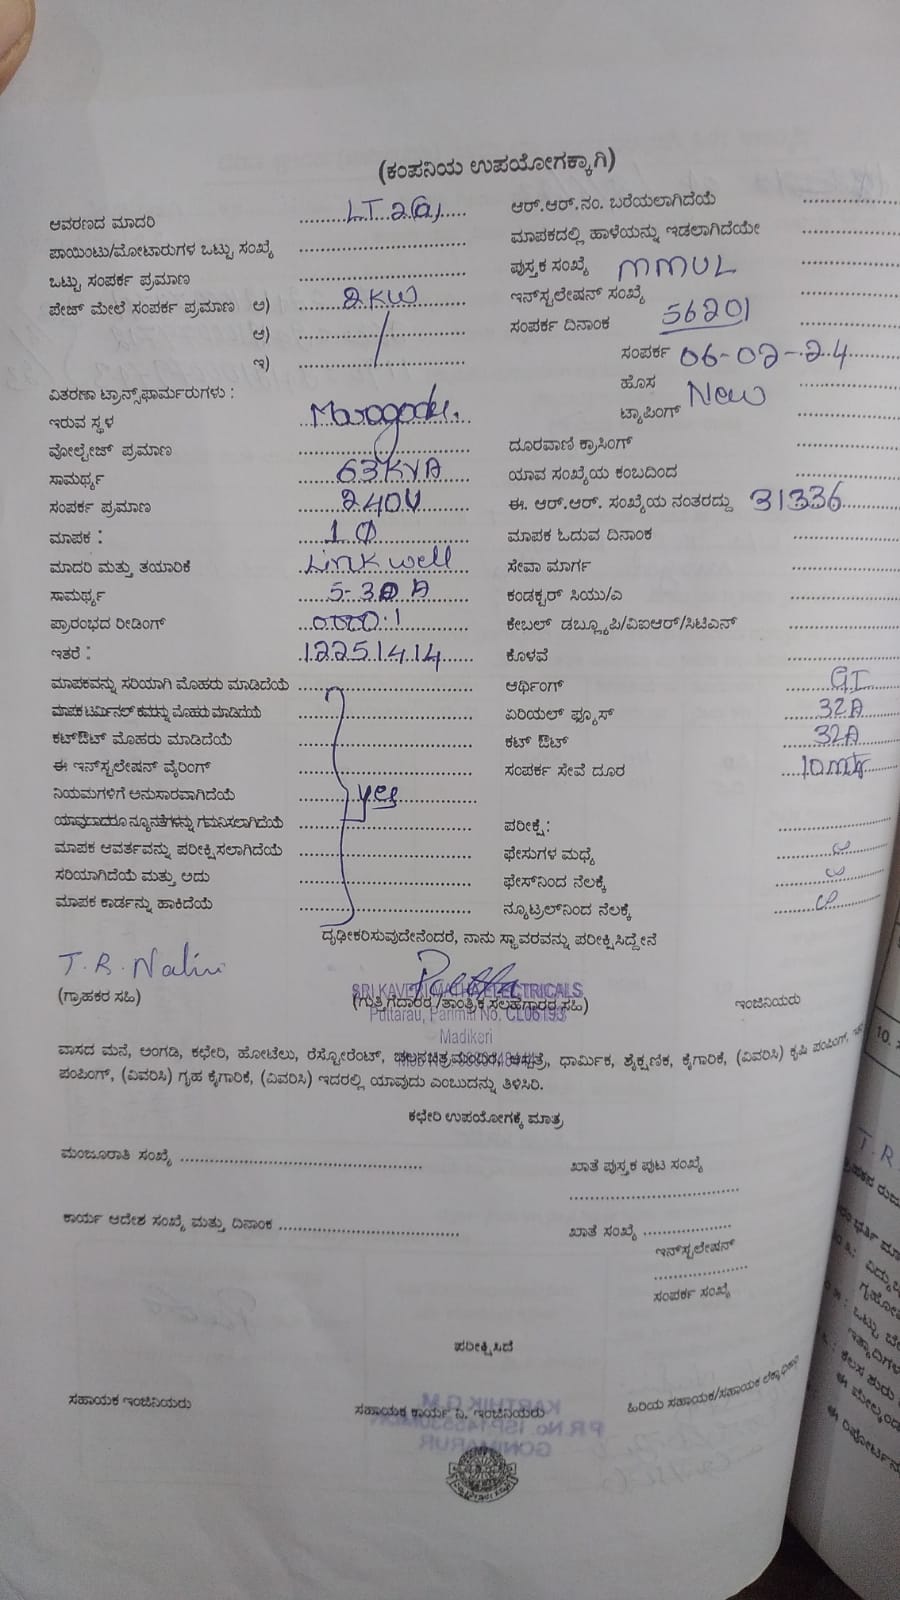 (ಕಂಪನಿಯ ಉಪಯೋಗಕ್ಕಾಗಿ)
ಆವರಣದ ಮಾದರಿ LT 2(a)
ಪಾಯಿಂಟು/ಮೋಟಾರುಗಳ ಒಟ್ಟು ಸಂಖ್ಯೆ
ಒಟ್ಟು ಸಂಪರ್ಕ ಪ್ರಮಾಣ
ಪೇಜ್ ಮೇಲೆ ಸಂಪರ್ಕ ಪ್ರಮಾಣ ಅ) 2KW
ಆ)
ಇ)
ವಿತರಣಾ ಟ್ರಾನ್ಸ್‌ಫಾರ್ಮರುಗಳು :
ಇರುವ ಸ್ಥಳ Maragodu.
ವೋಲ್ಟೇಜ್ ಪ್ರಮಾಣ
ಸಾಮರ್ಥ್ಯ 63KVA
ಸಂಪರ್ಕ ಪ್ರಮಾಣ 240V
ಮಾಪಕ : 1 Φ
ಮಾದರಿ ಮತ್ತು ತಯಾರಿಕೆ Link well
ಸಾಮರ್ಥ್ಯ 5-30 A
ಪ್ರಾರಂಭದ ರೀಡಿಂಗ್
ಇತರೆ : 12251414
ಮಾಪಕವನ್ನು ಸರಿಯಾಗಿ ಮೊಹರು ಮಾಡಿದೆಯೆ
ಮಾಪಕ ಟರ್ಮಿನಲ್ ಕವರನ್ನು ಮೊಹರು ಮಾಡಿದೆಯೆ
ಕಟ್‌ಔಟ್ ಮೊಹರು ಮಾಡಿದೆಯೆ
ಈ ಇನ್‌ಸ್ಟಲೇಷನ್ ವೈರಿಂಗ್
ನಿಯಮಗಳಿಗೆ ಅನುಸಾರವಾಗಿದೆಯೆ yes
ಯಾವುದಾದರೂ ನ್ಯೂನತೆಗಳನ್ನು ಗಮನಿಸಲಾಗಿದೆಯೆ
ಮಾಪಕ ಆವರ್ತವನ್ನು ಪರೀಕ್ಷಿಸಲಾಗಿದೆಯೆ
ಸರಿಯಾಗಿದೆಯೆ ಮತ್ತು ಅದು
ಮಾಪಕ ಕಾರ್ಡನ್ನು ಹಾಕಿದೆಯೆ
ಆರ್.ಆರ್.ನಂ. ಬರೆಯಲಾಗಿದೆಯೆ
ಮಾಪಕದಲ್ಲಿ ಹಾಳೆಯನ್ನು ಇಡಲಾಗಿದೆಯೇ
ಪುಸ್ತಕ ಸಂಖ್ಯೆ MMUL
ಇನ್‌ಸ್ಟಲೇಷನ್ ಸಂಖ್ಯೆ
ಸಂಪರ್ಕ ದಿನಾಂಕ 56201
ಸಂಪರ್ಕ 06-02-24
ಹೊಸ New
ಟ್ಯಾಪಿಂಗ್
ದೂರವಾಣಿ ಕ್ರಾಸಿಂಗ್
ಯಾವ ಸಂಖ್ಯೆಯ ಕಂಬದಿಂದ
ಈ. ಆರ್.ಆರ್. ಸಂಖ್ಯೆಯ ನಂತರದ್ದು 31336
ಮಾಪಕ ಓದುವ ದಿನಾಂಕ
ಸೇವಾ ಮಾರ್ಗ
ಕಂಡಕ್ಟರ್ ಸಿಯು/ಎ
ಕೇಬಲ್ ಡಬ್ಲ್ಯೂಪಿ/ವಿಐಆರ್/ಸಿಟಿಎಸ್
ಕೊಳವೆ
ಆರ್ಥಿಂಗ್ GI
ಏರಿಯಲ್ ಫ್ಯೂಸ್ 32A
ಕಟ್ ಔಟ್ 32A
ಸಂಪರ್ಕ ಸೇವೆ ದೂರ
ಪರೀಕ್ಷೆ:
ಫೇಸುಗಳ ಮಧ್ಯೆ
ಫೇಸ್‌ನಿಂದ ನೆಲಕ್ಕೆ
ನ್ಯೂಟ್ರಲ್‌ನಿಂದ ನೆಲಕ್ಕೆ
ದೃಢೀಕರಿಸುವುದೇನೆಂದರೆ, ನಾನು ಸ್ಥಾವರವನ್ನು ಪರೀಕ್ಷಿಸಿದ್ದೇನೆ
T.R. Nalini
SRI KAVERI MATHA ELECTRICALS
(ಗ್ರಾಹಕರ ಸಹಿ) (ಗುತ್ತಿಗೆದಾರರ /ತಾಂತ್ರಿಕ ಸಲಹೆಗಾರರ ಸಹಿ) ಇಂಜಿನಿಯರು
Madikeri
ವಾಸದ ಮನೆ, ಅಂಗಡಿ, ಕಛೇರಿ, ಹೋಟೆಲು, ರೆಸ್ಟೋರೆಂಟ್, ಚಲನಚಿತ್ರಮಂದಿರ, ಆಸ್ಪತ್ರೆ, ಧಾರ್ಮಿಕ, ಶೈಕ್ಷಣಿಕ, ಕೈಗಾರಿಕೆ, (ವಿವರಿಸಿ) ಕೃಷಿ ಪಂಪಿಂಗ್,
ಪಂಪಿಂಗ್, (ವಿವರಿಸಿ) ಗೃಹ ಕೈಗಾರಿಕೆ, (ವಿವರಿಸಿ) ಇದರಲ್ಲಿ ಯಾವುದು ಎಂಬುದನ್ನು ತಿಳಿಸಿರಿ.
ಕಛೇರಿ ಉಪಯೋಗಕ್ಕೆ ಮಾತ್ರ
ಮಂಜೂರಾತಿ ಸಂಖ್ಯೆ
ಖಾತೆ ಪುಸ್ತಕ ಪುಟ ಸಂಖ್ಯೆ
ಕಾರ್ಯ ಆದೇಶ ಸಂಖ್ಯೆ ಮತ್ತು ದಿನಾಂಕ
ಖಾತೆ ಸಂಖ್ಯೆ
ಇನ್‌ಸ್ಟಲೇಷನ್
ಸಂಪರ್ಕ ಸಂಖ್ಯೆ
ಪರೀಕ್ಷಿಸಿದೆ
ಸಹಾಯಕ ಇಂಜಿನಿಯರು ಸಹಾಯಕ ಕಾರ್ಯ ನಿ. ಇಂಜಿನಿಯರು ಹಿರಿಯ ಸಹಾಯಕ/ಸಹಾಯಕ ಲೆಕ್ಕಾಧಿಕಾರಿ